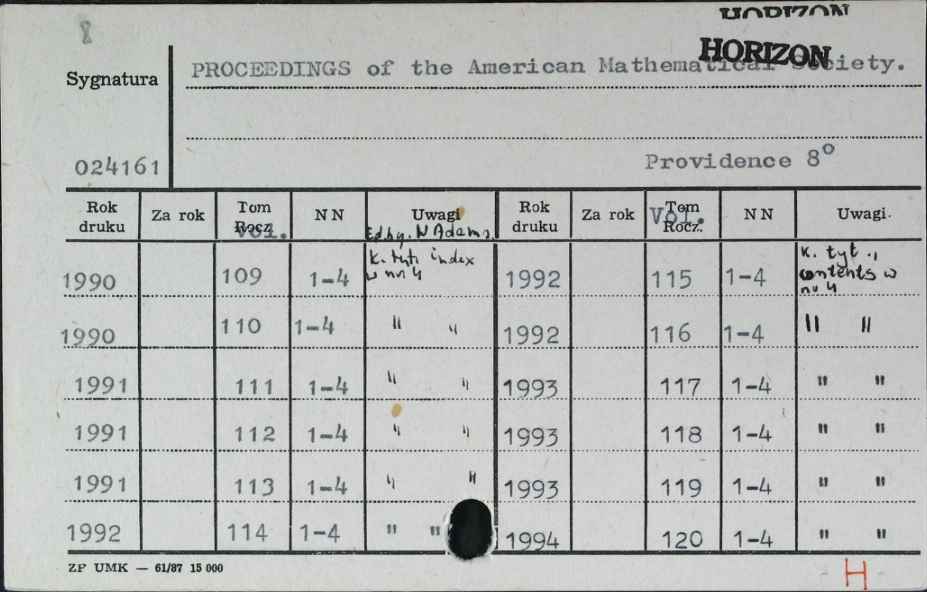 HORIZON
8
HORIZON
Sygnatura PROCEEDINGS of the American Mathematical Society.
024161 Providence 8°
Rok druku Za rok Tom Rocz. Vol. NN Uwagi Rok druku Za rok Tom Rocz. Vol. NN Uwagi
Ed. by. W Adams.
1990 109 1-4 K. tyt. index w nr 4 1992 115 1-4 K. tyt., contents w nu 4
1990 110 1-4 " " 1992 116 1-4 " "
1991 111 1-4 " " 1993 117 1-4 " "
1991 112 1-4 " " 1993 118 1-4 " "
1991 113 1-4 " " 1993 119 1-4 " "
1992 114 1-4 " " 1994 120 1-4 " "
ZP UMK — 61/87 15 000
H